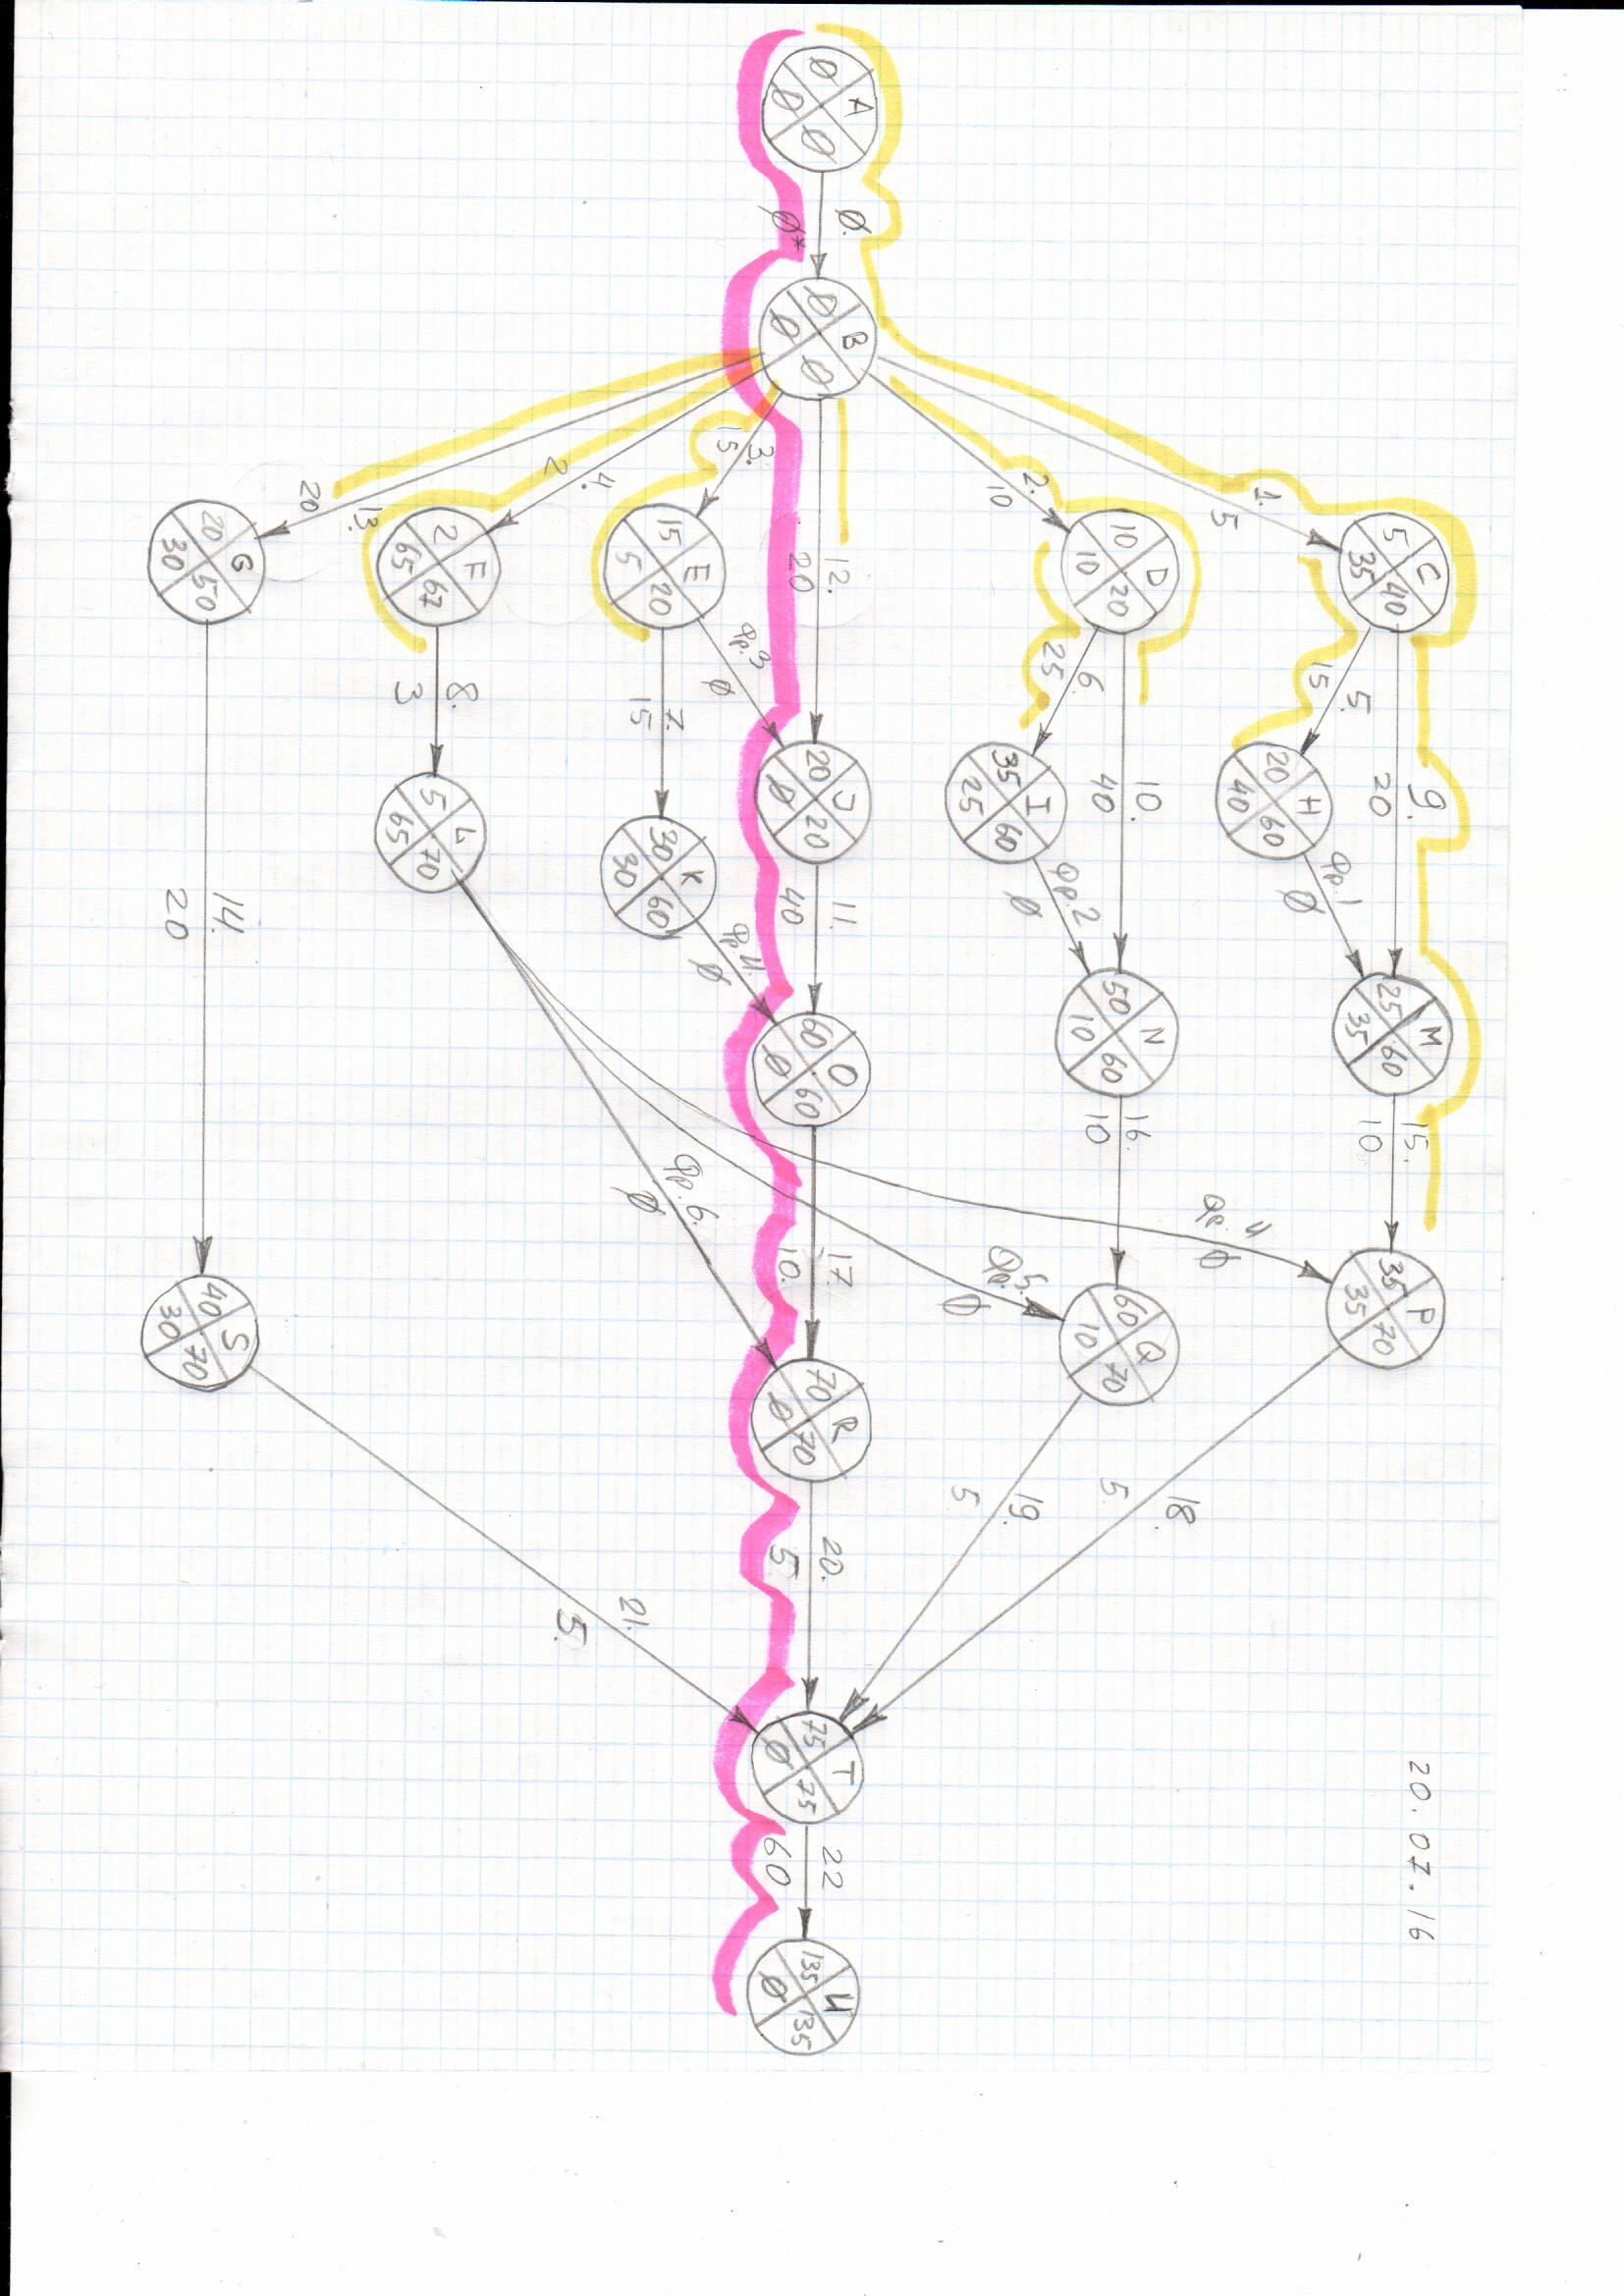 20.07.16
C
5 40
35
9.
20
M
25 60
35
15.
10
P
35 70
35
5.
15
H
20 60
40
Фр.1
Ø
1.
5
4
Ø
18.
5.
D
10 20
10
10.
40
N
50 60
10
16.
10
Q
60 70
10
6.
25
I
35 60
25
Фр.2
Ø
2.
10
Фр.5.
Ø
19.
5
A
Ø Ø
Ø
Ø.
Ø*
B
Ø Ø
Ø
12.
20
J
20 20
Ø
11.
40
O
60 60
Ø
17.
10.
R
70 70
Ø
20.
5
T
75 75
Ø
22
60
U
135 135
Ø
3.
15
E
15 20
5
Фр.3
Ø
7.
15
K
30 60
30
Фр.4.
Ø
Фр.6.
Ø
4.
2
F
2 67
65
8.
3
L
5 70
65
21.
5.
13.
20
G
20 50
30
14.
20
S
40 70
30